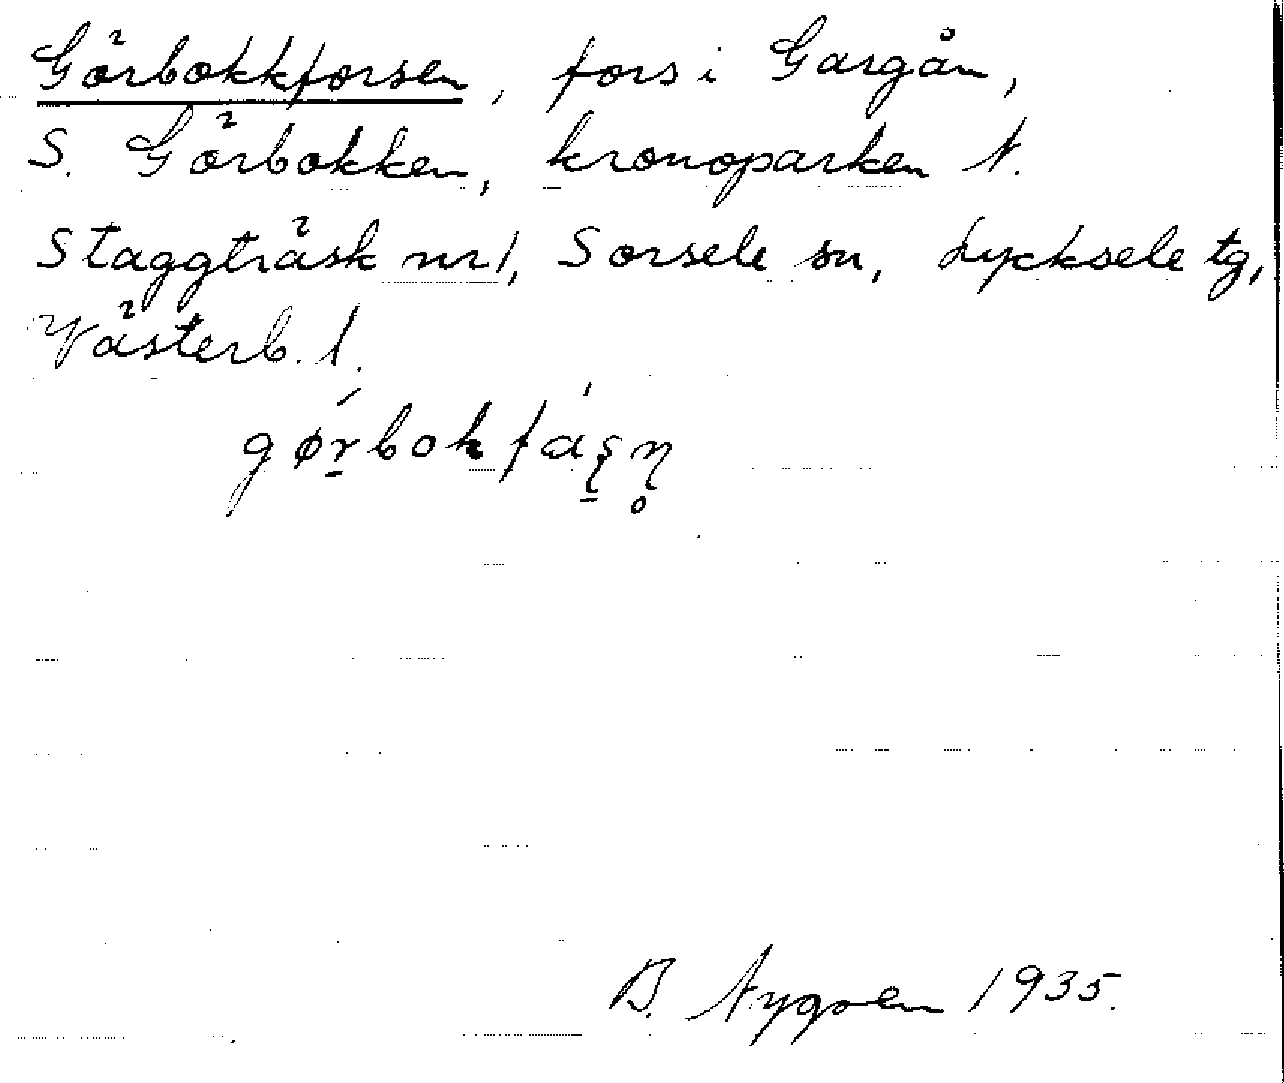 Görbokkforsen, fors i Gargån,
S. Görbokken, kronoparken N.
Staggträsk nr 1, Sorsele sn, Lycksele tg,
Västerb. l.
B. Nygren 1935.